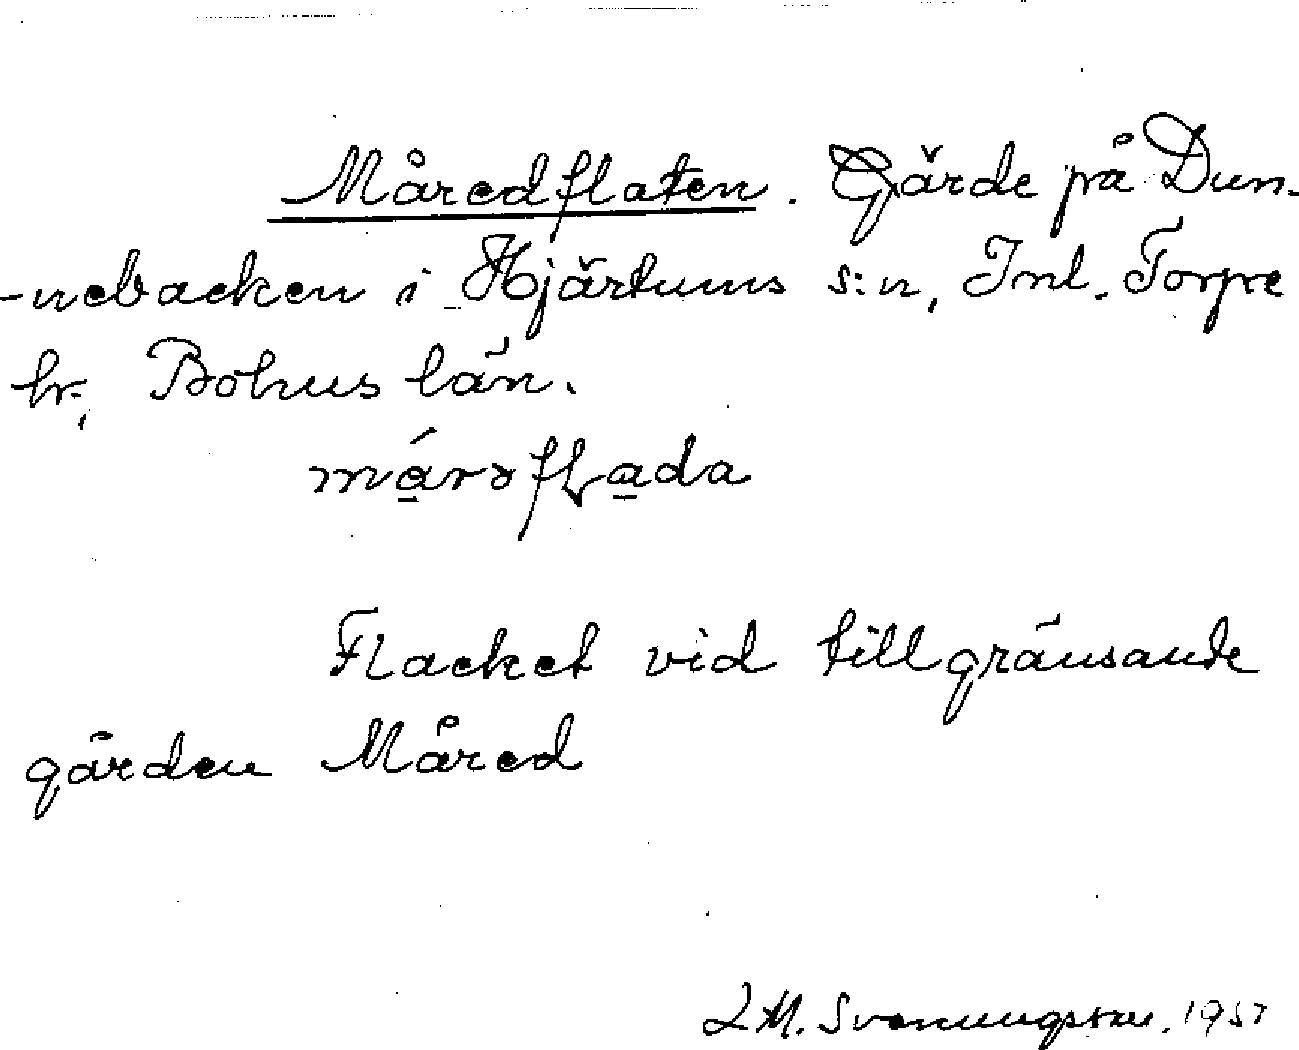 Måredflaten. Gärde på Dun-
-nebacken i Hjärtums s:n, Inl. Torpe
hr, Bohus län.
márəflada
Flacket vid tillgränsande
gården Måred
L M. Svenungsson. 1957